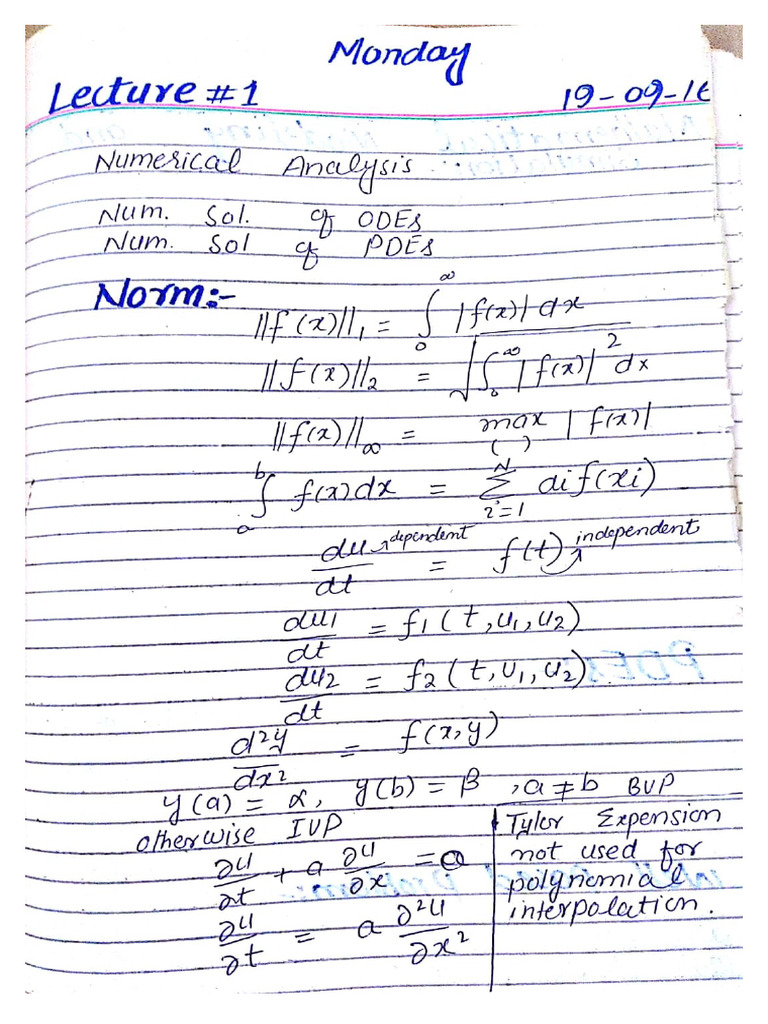 Monday
Lecture #1 19-09-16
Numerical Analysis
Num. Sol. of ODEs
Num. Sol of PDEs
Norm:-
||f(x)||₁ = ∫₀^∞ |f(x)| dx
||f(x)||₂ = √(∫₀^∞ |f(x)|² dx)
||f(x)||∞ = max |f(x)|
( )
∫ₐᵇ f(x)dx = Σᵢ₌₁ᴺ aif(xi)
du/dt = f(t)
dependent independent
du₁/dt = f₁(t,u₁,u₂)
du₂/dt = f₂(t,u₁,u₂)
d²y/dx² = f(x,y)
y(a) = α, y(b) = β , a ≠ b BVP
otherwise IVP
∂u/∂t + a ∂u/∂x = 0
∂u/∂t = a ∂²u/∂x²
Tylor Expension
not used for
polynomial
interpolation.